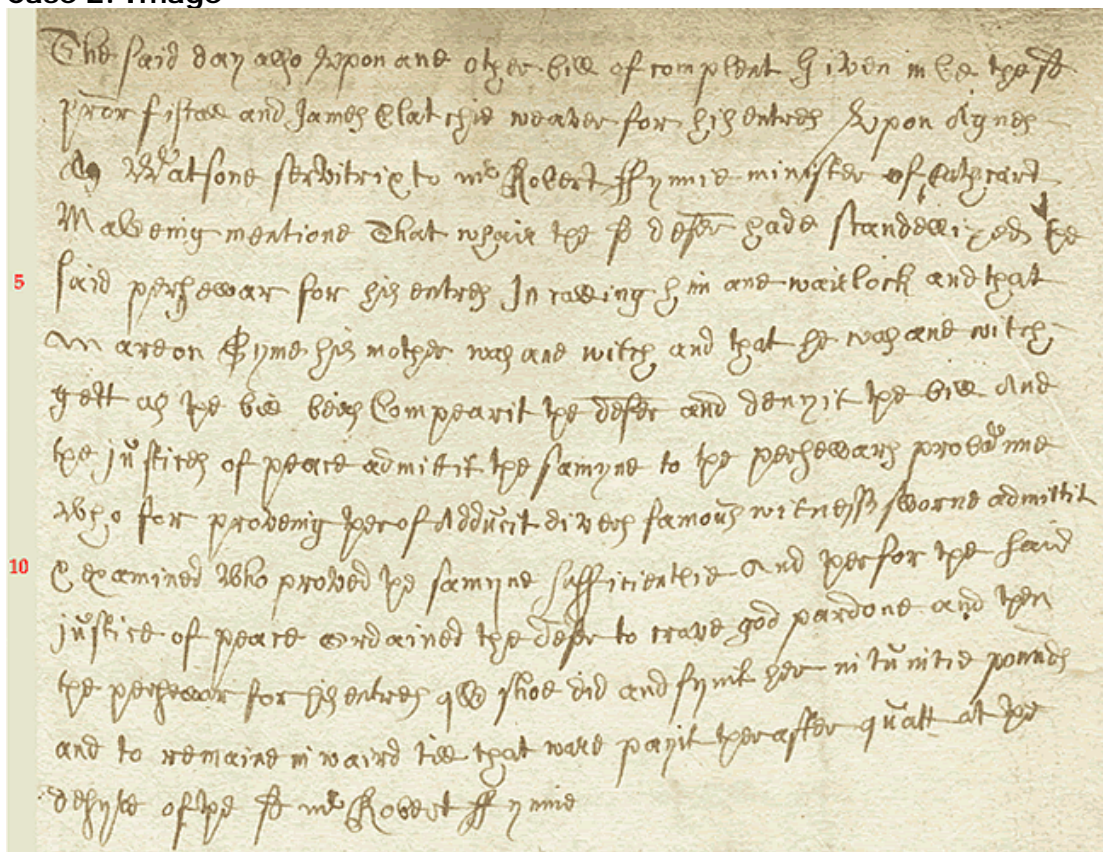 Case 2: Image
The said day also Upon ane other bill of complent Given in be the sd
pror fiscall and James Clatchie weaver for his entres Upon Agnes
Ag Watsone servitrix to mr Robert ffynnie minister of Cathcart
Makeing mentione That whair the sd defer hade standellized the
5 said persewar for his entres In calling him ane warlock and that
Mareon Gyme his mother was ane witch and that he was ane witch
gett as the bill beirs Compearit the defer and denyit the bill And
the justices of peace admittit the samyne to the persewars probatione
Who for proveing therof Adducit divers famous witness sworne admittit
10 & examined Who proved the samyne sufficientlie And therfor the said
justice of peace ordained the defer to crave god pardone and then
the persewar for his entres qlk shoe did and fynit her in tuintie pounds
and to remaine in waird till that ware payit therafter quatt at the
desyre of the sd mr Robert ffynnie